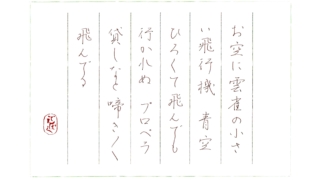 お空に雲雀の小さ
い飛行機 青空
ひろくて飛んでも
行かれぬ プロペラ
貸しなと啼き〳〵
飛んでる